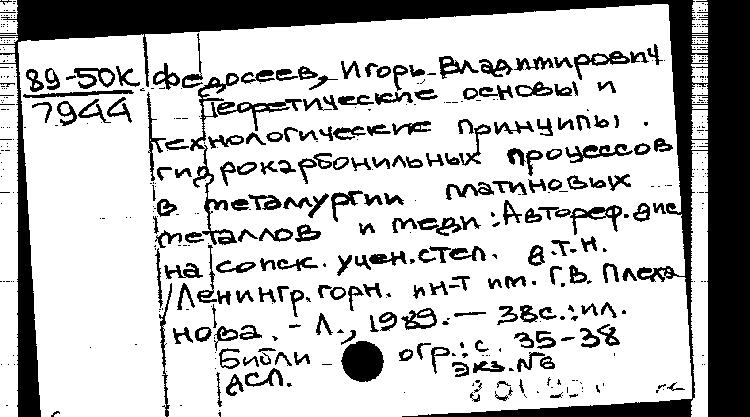 89-50К Федосеев, Игорь Владимирович
7944 Теоретические основы и
технологические принципы
гидрокарбонильных процессов
в металлургии платиновых
металлов и меди : Автореф. дис
на соиск. учен. степ. д.т.н.
/ Ленингр. горн. ин-т им. Г.В. Плеха
нова. - Л., 1989. — 38с. : ил.
Библи огр.: с. 35-38
ДСП. экз. №